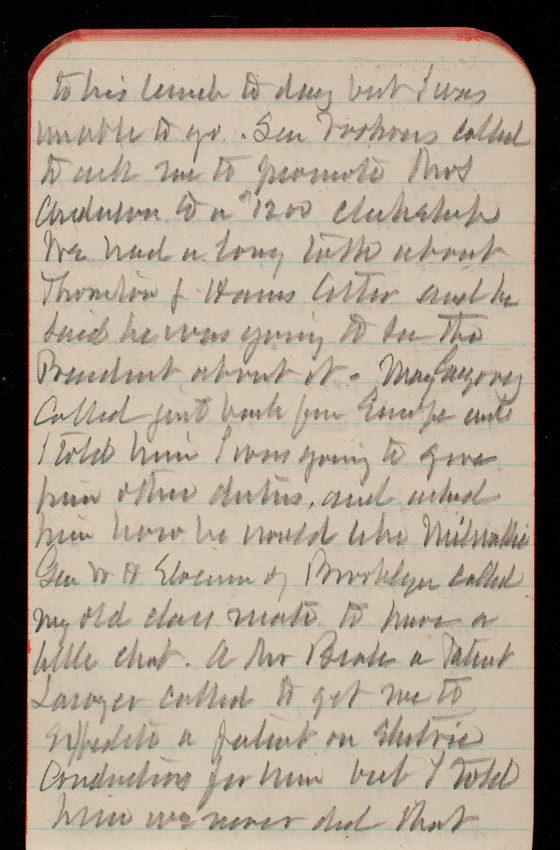 to his lunch to day but I was
unable to go. Sen Voorhees called
to ask me to promote Mrs
Anderson to a $1200 clerkship
We had a long talk about
Thornton & Hams letter and he
said he was going to see the
President about it. Maj
Called just back from Europe and
I told him I was going to give
him other duties, and asked
him how he would like Milwaukie
Gen W H Slocum of Brooklyn called
my old class mate to have a
little chat. A Mr a Patent
Lawyer called to get me to
Expedite a patent on Electric
Conductors for him but I told
him we never did that